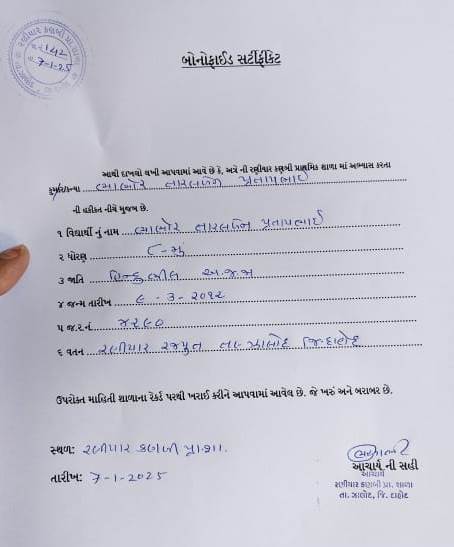 રણીયાર કણબી પ્રા. શાળા
જા.નં. 142
તા. 7-1-25
બોનોફાઈડ સર્ટીફીકેટ
આથી દાખલો લખી આપવામાં આવે છે કે, અત્રે ની રણીયાર કણબી પ્રાથમિક શાળા માં અભ્યાસ કરતા
કુમાર/કન્યા ભાભોર તારલબેન પ્રતાપભાઈ
ની હકીકત નીચે મુજબ છે.
૧ વિદ્યાર્થી નું નામ ભાભોર તારલબેન પ્રતાપભાઈ
૨ ધોરણ ૮-મું
૩ જાતિ હિન્દુ ભીલ અ.જ.જા
૪ જન્મ તારીખ ૯-૩-૨૦૧૨
૫ જ.ર.નં ૪૨૯૦
૬ વતન રણીયાર રજપુત તા- ઝાલોદ જિ-દાહોદ
ઉપરોક્ત માહિતી શાળાના રેકર્ડ પરથી ખરાઈ કરીને આપવામાં આવેલ છે. જે ખરું અને બરાબર છે.
સ્થળ: રણીયાર કણબી પ્રા.શા.
તારીખ: 7-1-2025
આચાર્ય ની સહી
આચાર્ય
રણીયાર કણબી પ્રા. શાળા
તા. ઝાલોદ, જિ. દાહોદ